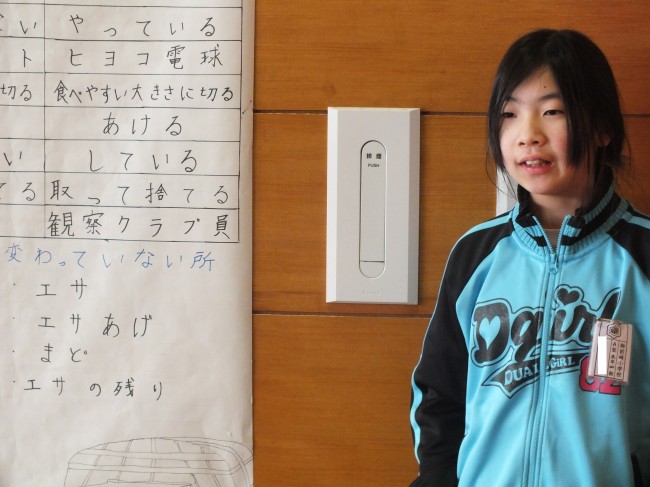 い やっている
ト ヒヨコ電球
切る 食べやすい大きさに切る
あける
い している
てる 取って捨てる
観察クラブ員
変わっていない所
・エサ
・エサあげ
・まど
・エサの残り
排煙
PUSH
Dgirl
DUAL GIRL
02